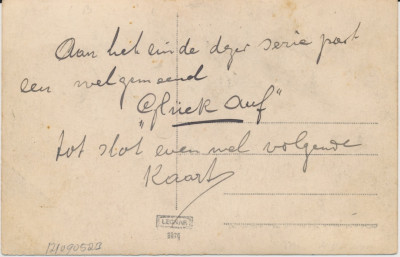 Aan het einde dezer serie past
een welgemeend
„Glück auf"
tot slot even wel volgende
Kaart
LEONAR
12/090528